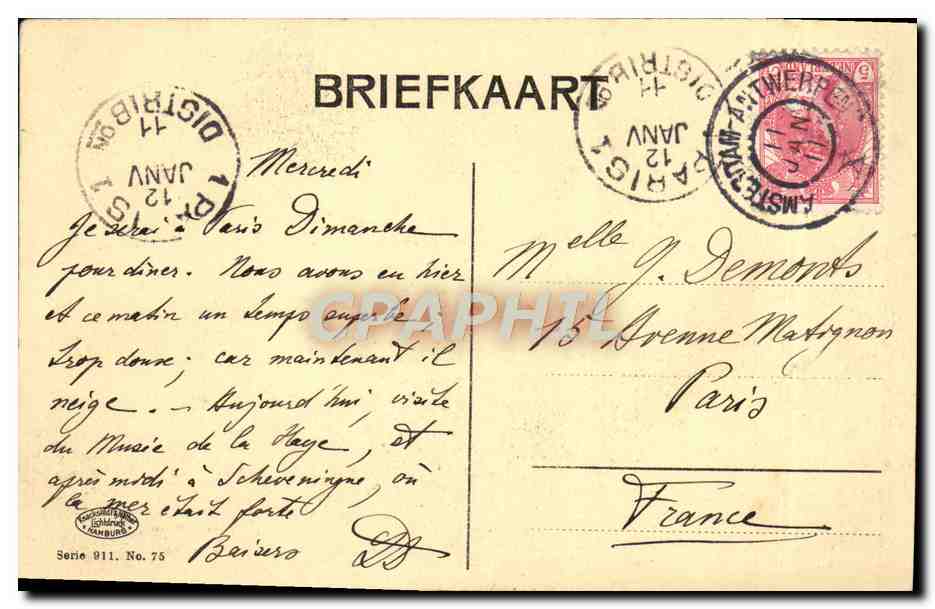 BRIEFKAART
PARIS 1
DISTRIBON
12
JANV
11
PARIS 1
DISTRIBON
12
JANV
11
AMSTERDAM-ANTWERPEN
11
JAN
11
5
5
Mercredi
Je serai à Paris Dimanche
pour diner. Nous avons eu hier
et ce matin un temps superbe;
trop doux; car maintenant il
neige. — Aujourd'hui, visite
du Musée de la Haye, et
après midi à Scheveningue, où
la mer était forte
Baisers
DS
Melle G. Demonts
15 Avenue Matignon
Paris
France
CPAPHIL
Lichtdruck
HAMBURG
Serie 911. No. 75